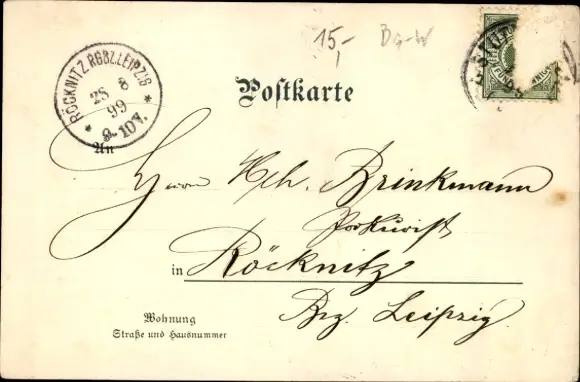 15,- Bg-W
RÖCKNITZ RGBZ. LEIPZIG
28 8
99
9-10 V.
Postkarte
An
Herrn Hch. Brinkmann
Prokurist
in Röcknitz
Brz. Leipzig
Wohnung
Straße und Hausnummer